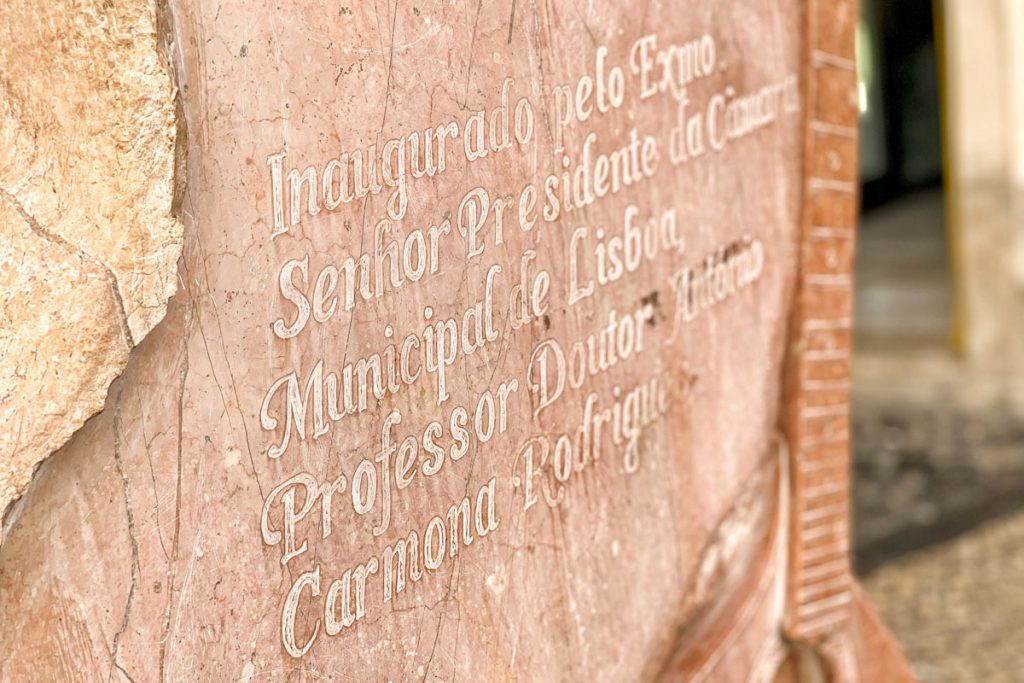 Inaugurado pelo Exmo.
Senhor Presidente da Câmara
Municipal de Lisboa,
Professor Doutor António
Carmona Rodrigues